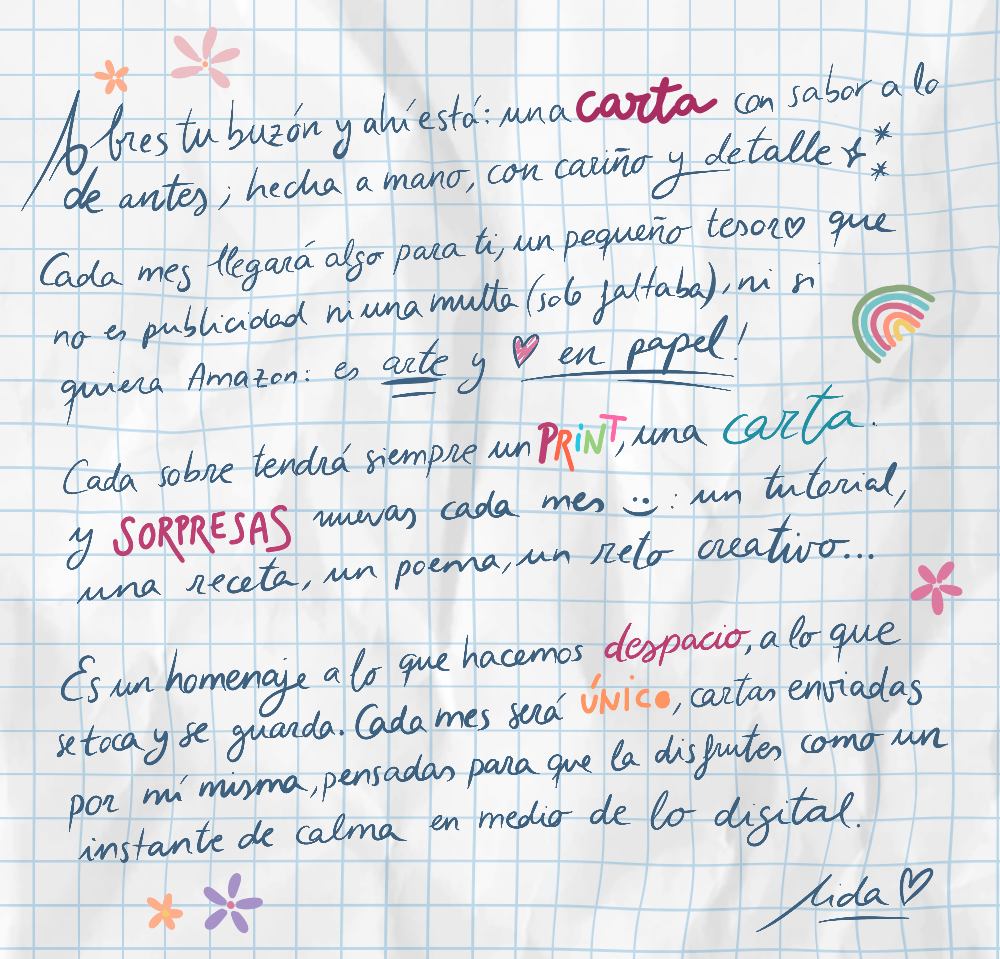 Abres tu buzón y ahí está: una carta con sabor a lo
de antes; hecha a mano, con cariño y detalle
Cada mes llegará algo para ti, un pequeño tesoro que
no es publicidad ni una multa (solo faltaba), ni si
quiera Amazon: es arte y ♡ en papel!
Cada sobre tendrá siempre un PRiNT, una carta.
y SORPRESAS nuevas cada mes :) : un tutorial,
una receta, un poema, un reto creativo...
Es un homenaje a lo que hacemos despacio, a lo que
se toca y se guarda. Cada mes será ÚNiCO, cartas enviadas
por mí misma, pensadas para que la disfrutes como un
instante de calma en medio de lo digital.